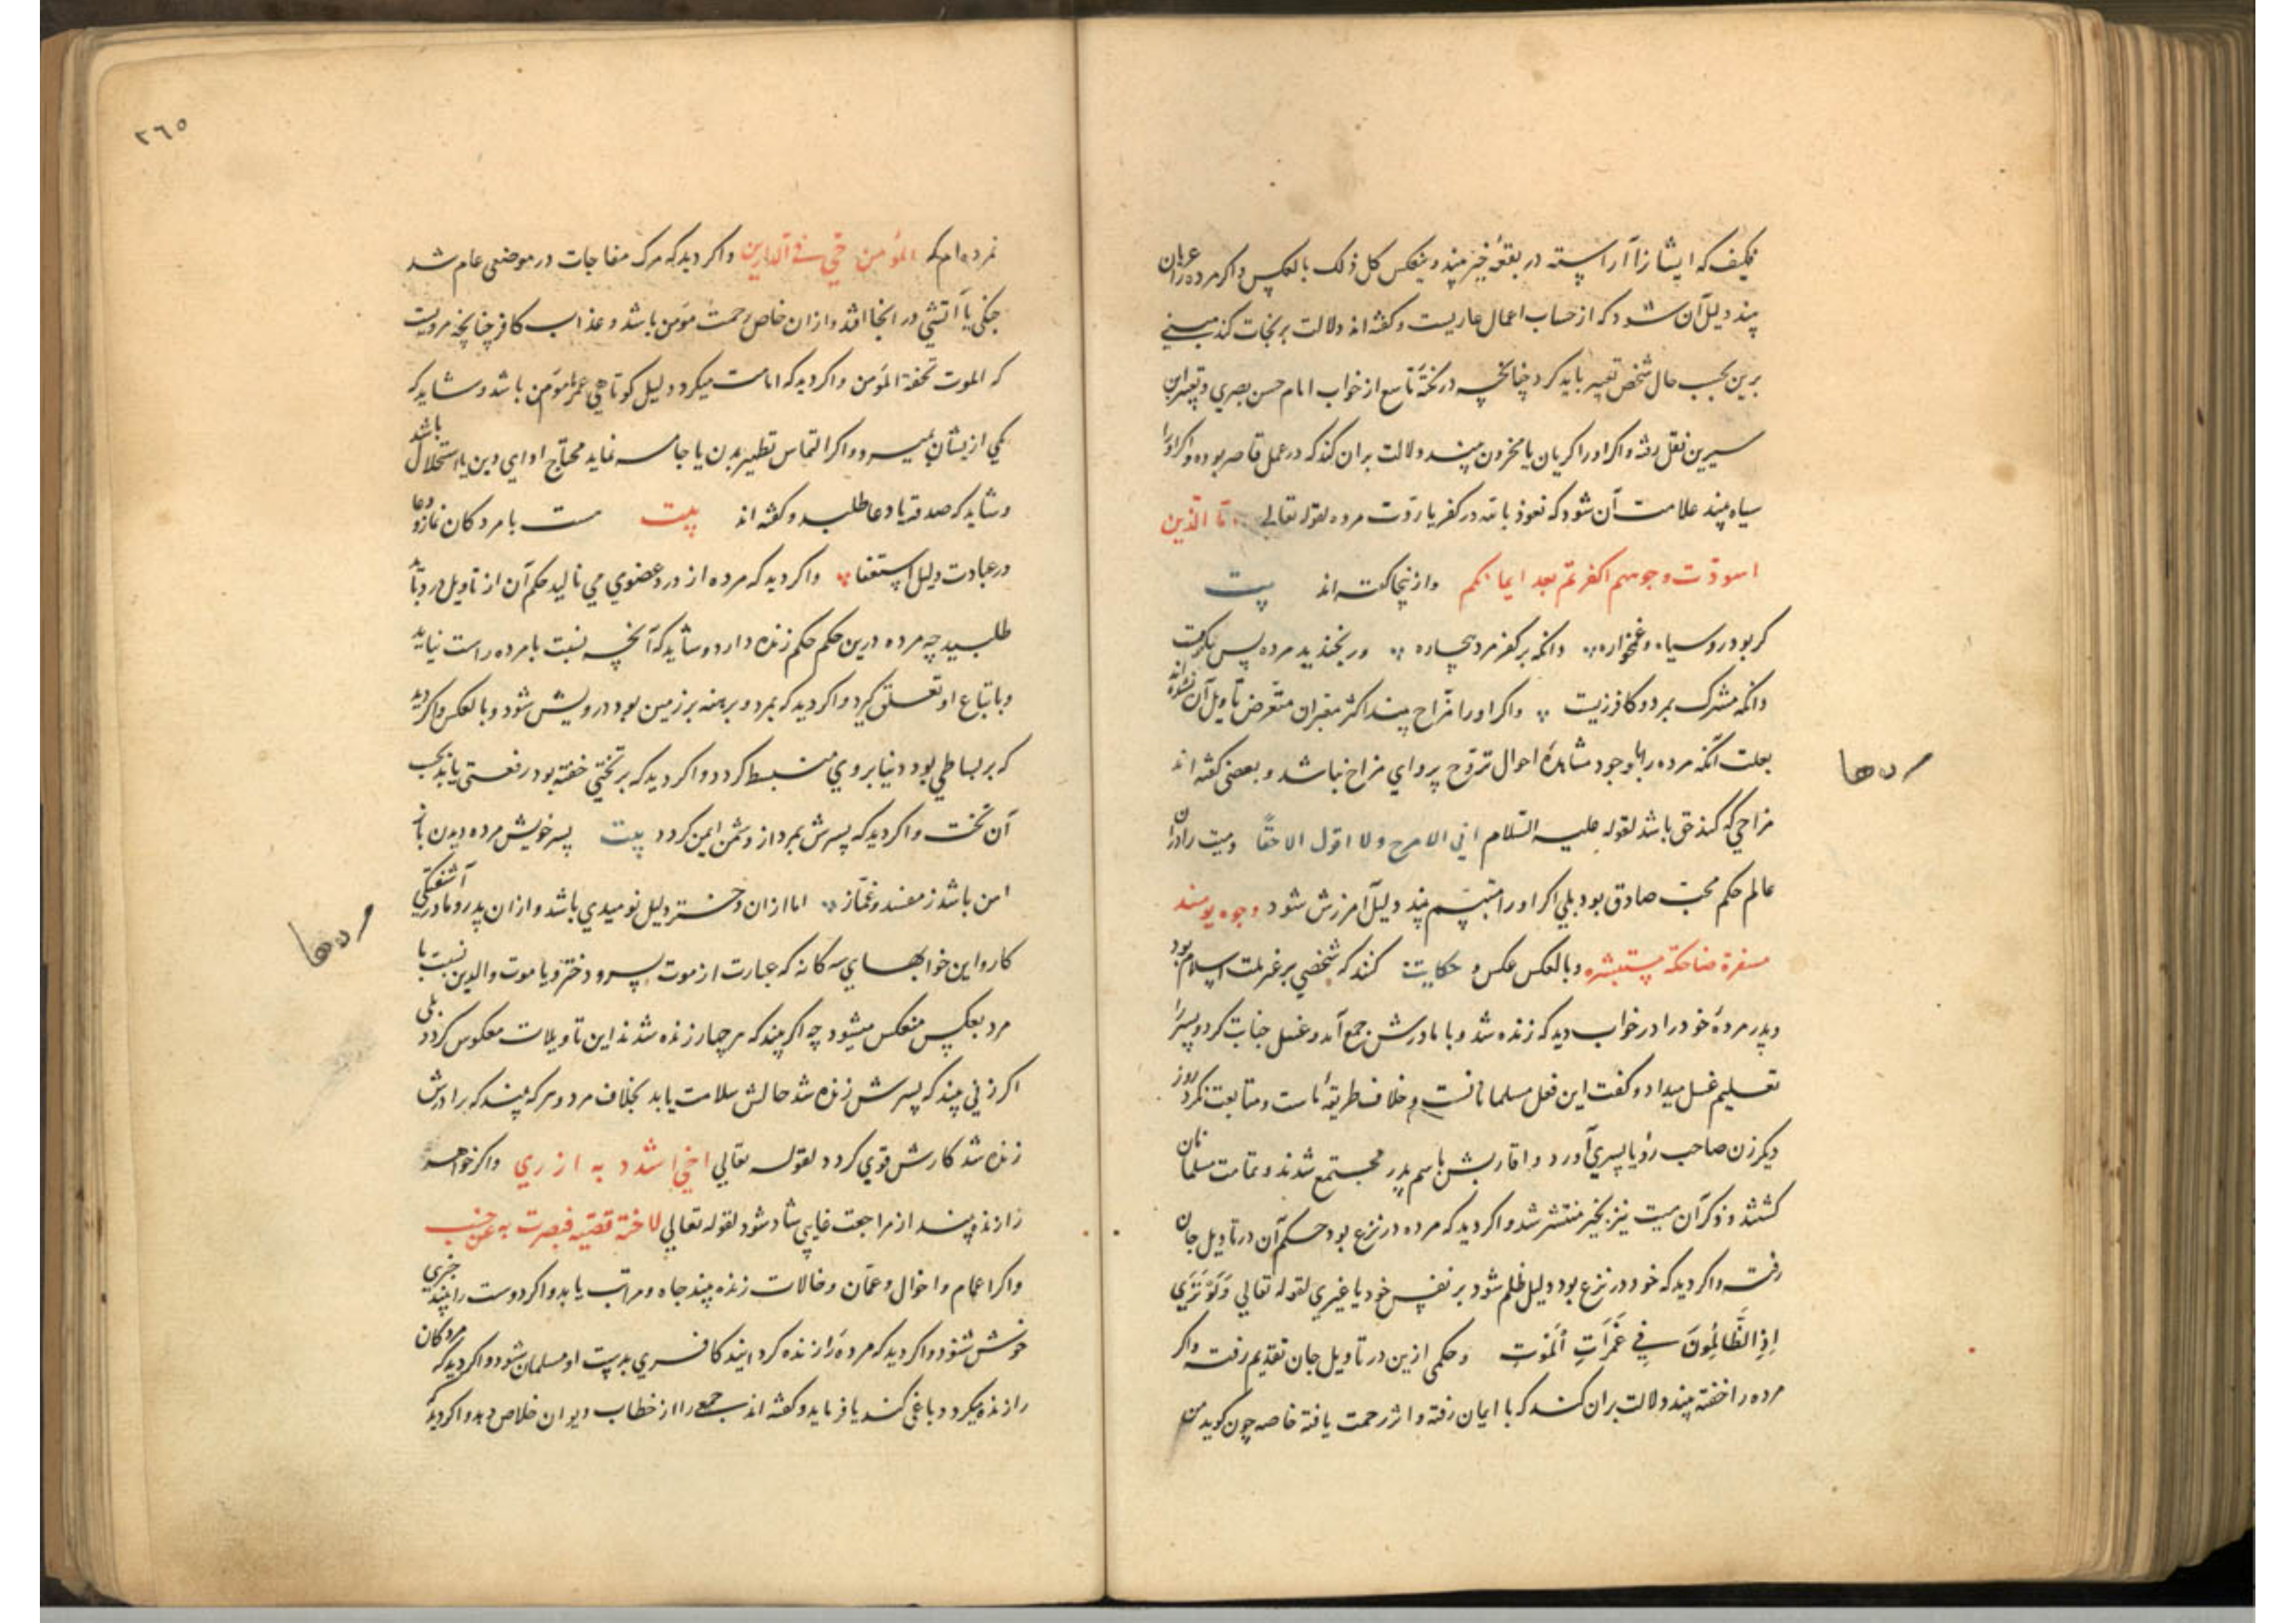 فکیف که ایشانرا آراسته در بقعهٔ خیر بیند و ینعکس کل ذلک بالعکس و اکر مرده را عریان
بیند دلیل آن شود که از حساب اعمال عاریست و کفته‌اند دلالت بر نجات کند مبنی
برین بحسب حال شخص تعبیر باید کرد چنانچه در نکتهٔ تاسع از خواب امام حسن بصری و تعبیر ابن
سیرین نقل رفته و اکر او را کریان یا محزون بیند دلالت بران کند که در عمل قاصر بوده و اکر او را
سیاه بیند علامت آن شود که نعوذ بالله در کفر یا ردّت مرده لقوله تعالی فامّا الّذین
اسودّت وجوههم اکفرتم بعد ایمانکم وازینجا کفته‌اند بیت
کر بود روسیاه و غمخواره دانکه بر کفر مرد بیچاره ور بخندید مرده پس بکریست
دانکه مشرک بمرد و کافر زیست واکر او را مزاح بیند اکثر معبران متعرض تاویل آن نشده‌اند
بعلت آنکه مرده را با وجود مشاهدهٔ احوال تروّح پروای مزاح نباشد و بعضی کفته‌اند
مزاحی که کند حق باشد لقوله علیه السّلام انی لامزح ولا اقول الا حقّا ومیت را در ان
عالم حکم محبّ صادق بود بلی اکر او را متبسّم بیند دلیل آمرزش شود وجوه یومئذ
مسفرة ضاحکة مستبشره وبالعکس عکس و حکایت کنند که شخصی بر غیر ملت اسلام بود
و پدر مردهٔ خود را در خواب دید که زنده شد و با مادرش جمع آمد و غسل جنابت کرد و پسر را
تعلیم غسل میداد و کفت این فعل مسلمانانست و خلاف طریقهٔ ماست و متابعت نکرد روز
دیکر زن صاحب رؤیا پسری آورد و اقاربش باسم پدر مجتمع شدند و تمامت مسلمانان
کشتند و ذکر آن میت نیز بخیر منتشر شد و اکر دید که مرده در نزع بود حکم آن در تاویل جان
رفت و اکر دید که خود در نزع بود دلیل ظلم شود بر نفس خود یا غیری لقوله تعالی وَلَوْ تَرَی
اِذِ الظَّالِمُونَ فِی غَمَرَاتِ الْمَوْتِ وحکمی ازین در تاویل جان تقدیم رفت واکر
مرده را خفته بیند دلالت بران کند که با ایمان رفته و اثر رحمت یافته خاصه چون کوید من
٢٦٥
نمرده‌ام که المؤمن حیّ فی الدارین واکر دید که مرک مفاجات در موضعی عام شد
جنکی یا آتشی در انجا افتد و ازان خاص رحمت مؤمن باشد و عذاب کافر چنانچه مرویست
که الموت تحفة المؤمن واکر دید که امامت میکرد دلیل کوتاهی عمر مأموم باشد و شاید که
یکی از یشان بمیرد و اکر التماس تطهیر بدن یا جامه نماید محتاج ادای دین یا استحلال باشد
و شاید که صدقه یا دعا طلبد و کفته‌اند بیت هست با مردکان نماز و دعا
در عبادت دلیل استغفا واکر دید که مرده از درد عضوی می نالید حکم آن از تاویل درد باید
طلبید چه مرده درین حکم حکم زنده دارد و شاید که آنچه نسبت با مرده راست نیاید
وباتباع او تعلق کیرد و اکر دید که بمرد و برهنه بر زمین بود درویش شود و بالعکس و اکر دید
که بر بساطی بود دنیا بروی منبسط کردد و اکر دید که بر تختی خفته بود رفعتی یابد بحسب
آن تخت و اکر دید که پسرش بمرد از دشمن ایمن کردد بیت پسر خویش مرده دیدن باز
امن باشد ز مفسد و غمّاز اما ازان دختر دلیل نومیدی باشد و ازان پدر و مادر آشفتکی
کار و این خوابهای سه کانه که عبارت از موت پسر و دختر و یا موت والدین نسبت با
مرد بعکس منعکس میشود چه اکر بیند که هر چهار زنده شدند این تاویلات معکوس کردد بلی
اکر زنی بیند که پسرش زنده شد حالش سلامت یابد بخلاف مرد و هرکه بیند که برادرش
زنده شد کارش قوی کردد لقوله تعالی اخی اشدد به ازری واکر خواهر
را زنده بیند از مراجعت غایبی شاد شود لقوله تعالی لاخته قصّیه فبصرت به عن جنب
واکر اعمام و اخوال و عمّان و خالات زنده بیند جاه و مراتب یابد و اکر دوست را بیند خبری
خوش شنود و اکر دید که مرده را زنده کردانید کافری بدست او مسلمان شود و اکر دید که مردکان
را زنده میکرد دباغی کند یا فرماید و کفته‌اند جمع را از خطاب دیوان خلاص دهد و اکر دید که